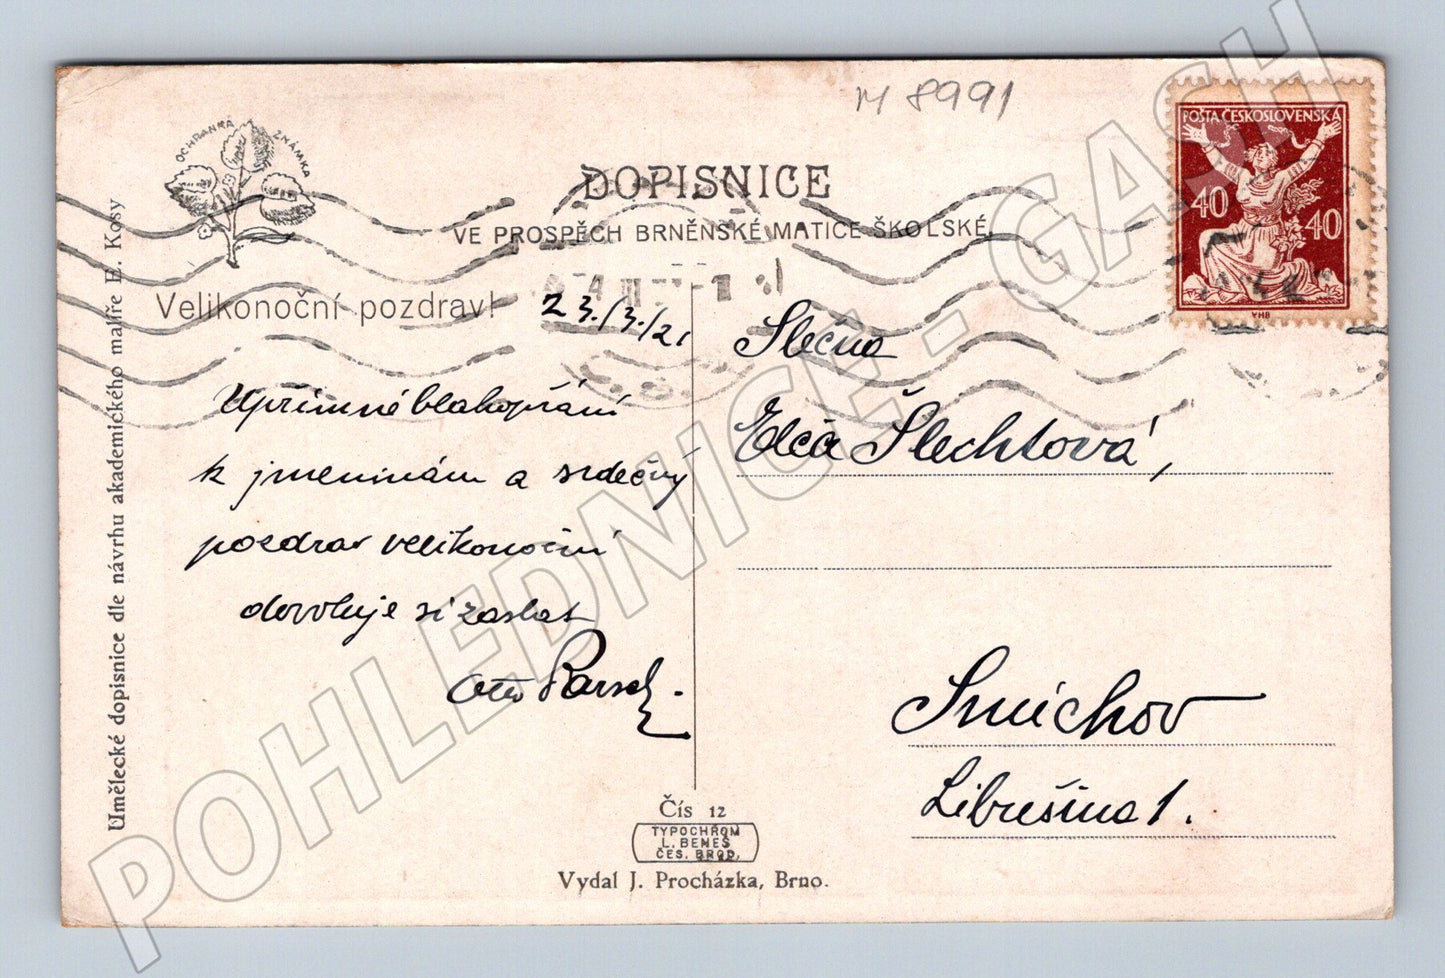 M 8991
OCHRANNÁ ZNÁMKA
POŠTA ČESKOSLOVENSKÁ
40 40
VHB
DOPISNICE
VE PROSPĚCH BRNĚNSKÉ MATICE ŠKOLSKÉ.
Velikonoční pozdrav!
23./3./21
Upřímné blahopřání
k jmeninám a srdečný
pozdrav velikonoční
dovoluje si zaslat
Otto
Slečna
Šlechtová,
Smíchov
Libušina 1.
Umělecké dopisnice dle návrhu akademického malíře E. Kosy
Čís 12
TYPOCHROM
L. BENEŠ
ČES. BROD.
Vydal J. Procházka, Brno.
POHLEDNICE - GASH